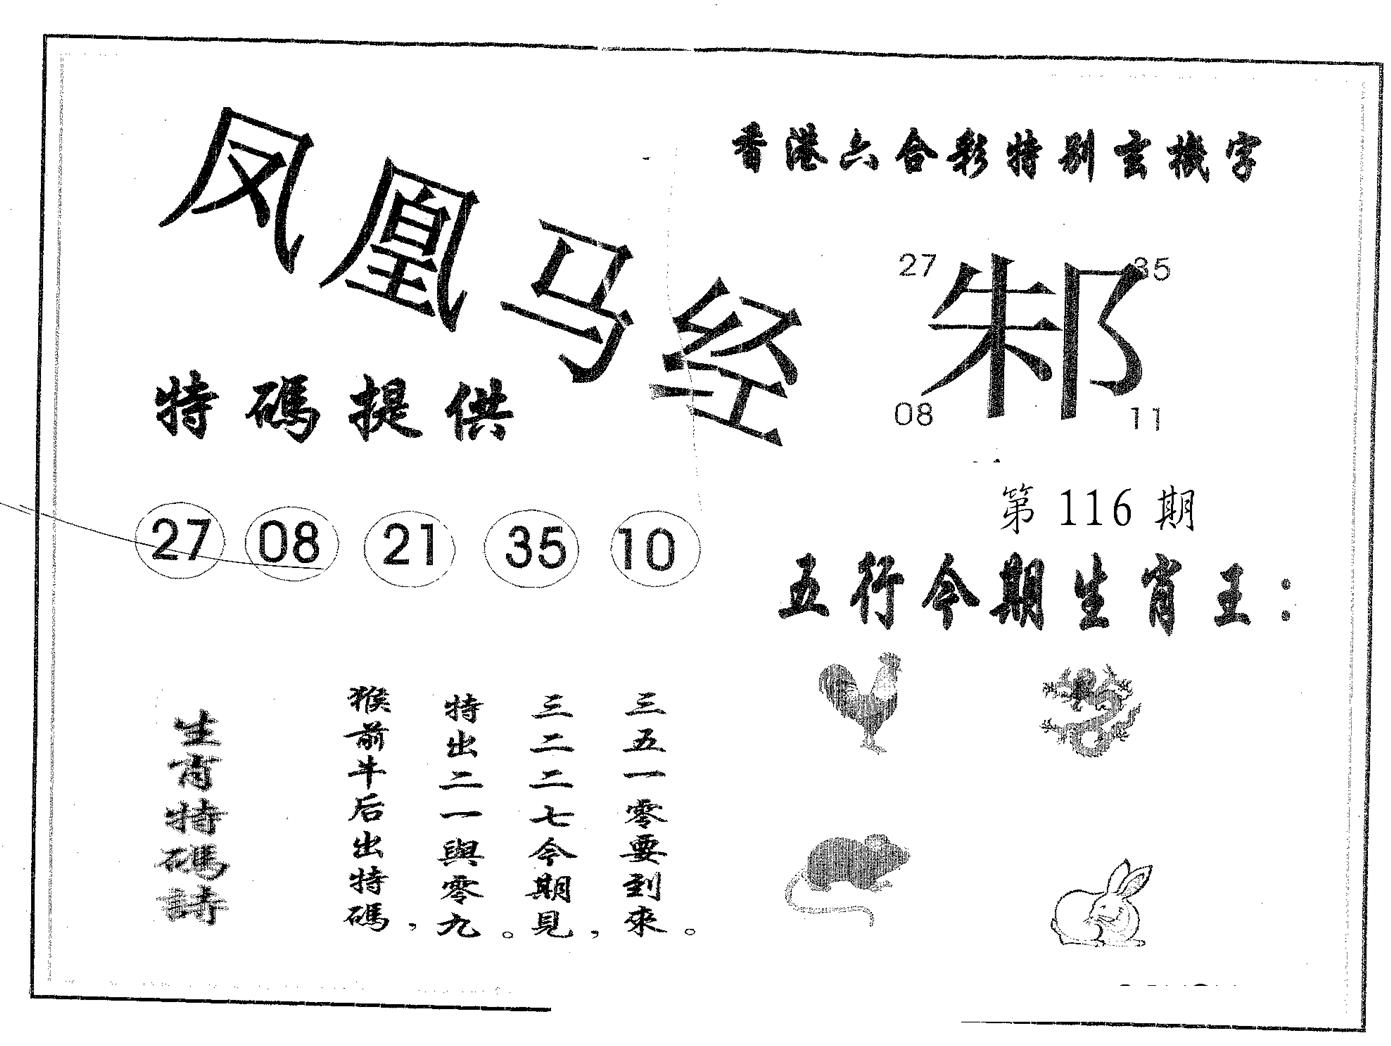 凤凰马经
香港六合彩特别玄機字
27
35
邾
08
11
特碼提供
第 116 期
27 08 21 35 10
五行今期生肖王：
生肖特碼詩
猴前牛后出特碼，
特出二一與零九。
三二二七今期見，
三五一零要到來。